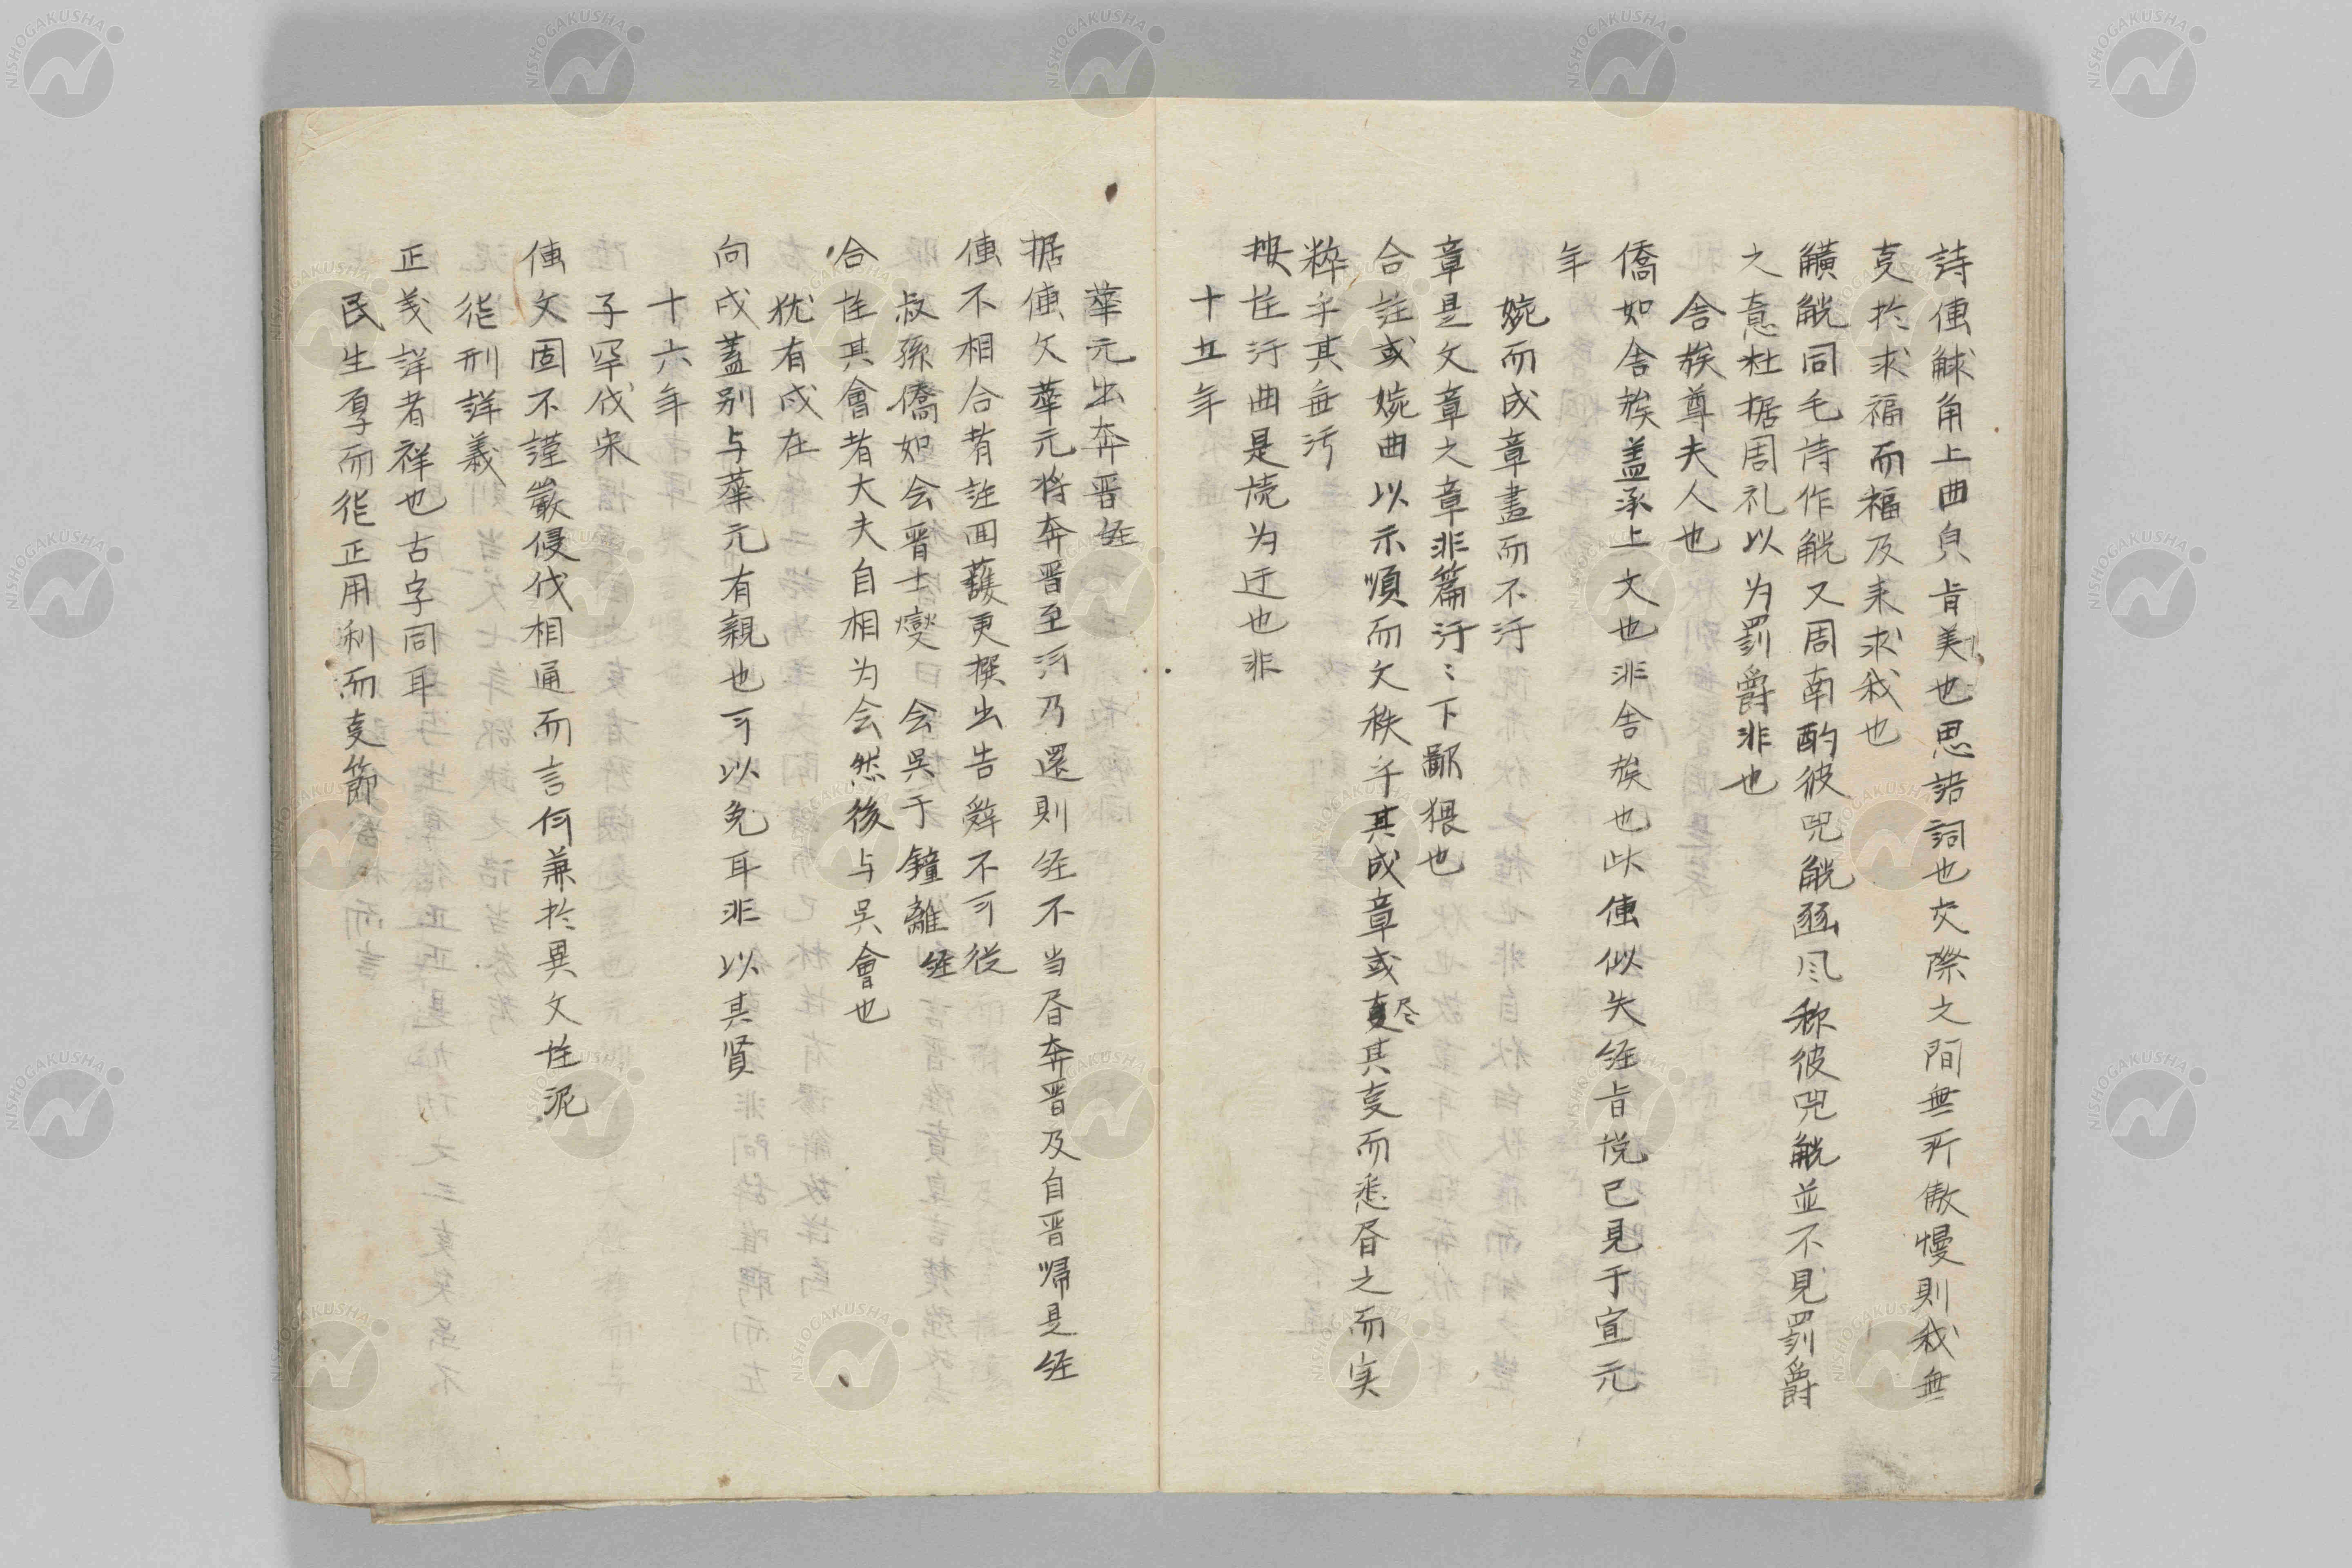 詩傳觩角上曲貌旨美也思語詞也交際之間無所傲慢則我無
事於求福而福及来求我也
觵觥同毛詩作觥又周南酌彼兕觥豳风称彼兕觥並不見罰爵
之意杜据周礼以为罰爵非也
舍族尊夫人也
僑如舍族盖承上文也非舎族也此傳似失經旨说已見于宣元
年
婉而成章盡而不汙
章是文章之章非篇汙〻下鄙猥也
合註或婉曲以示順而文秩乎其成章或尽其事而悉昏之而实
粹乎其無汚
按注汙曲是读为迂也非
十五年
華元出奔晋經
据傳文華元将奔晋至河乃還則經不当昏奔晋及自晋帰是經
傳不相合者註回護更撰出告辞不可從
叔孫僑如会晋士燮 会吳于鐘離經
合注其會者大夫自相为会然後与吳會也
犹有戍在
向戍蓋别与華元有親也可以免耳非以其贤
十六年
子罕伐宋
傳文固不謹嚴侵伐相通而言何兼於異文注泥
徳刑詳義
正義詳者祥也古字同耳
民生厚而徳正用利而事節